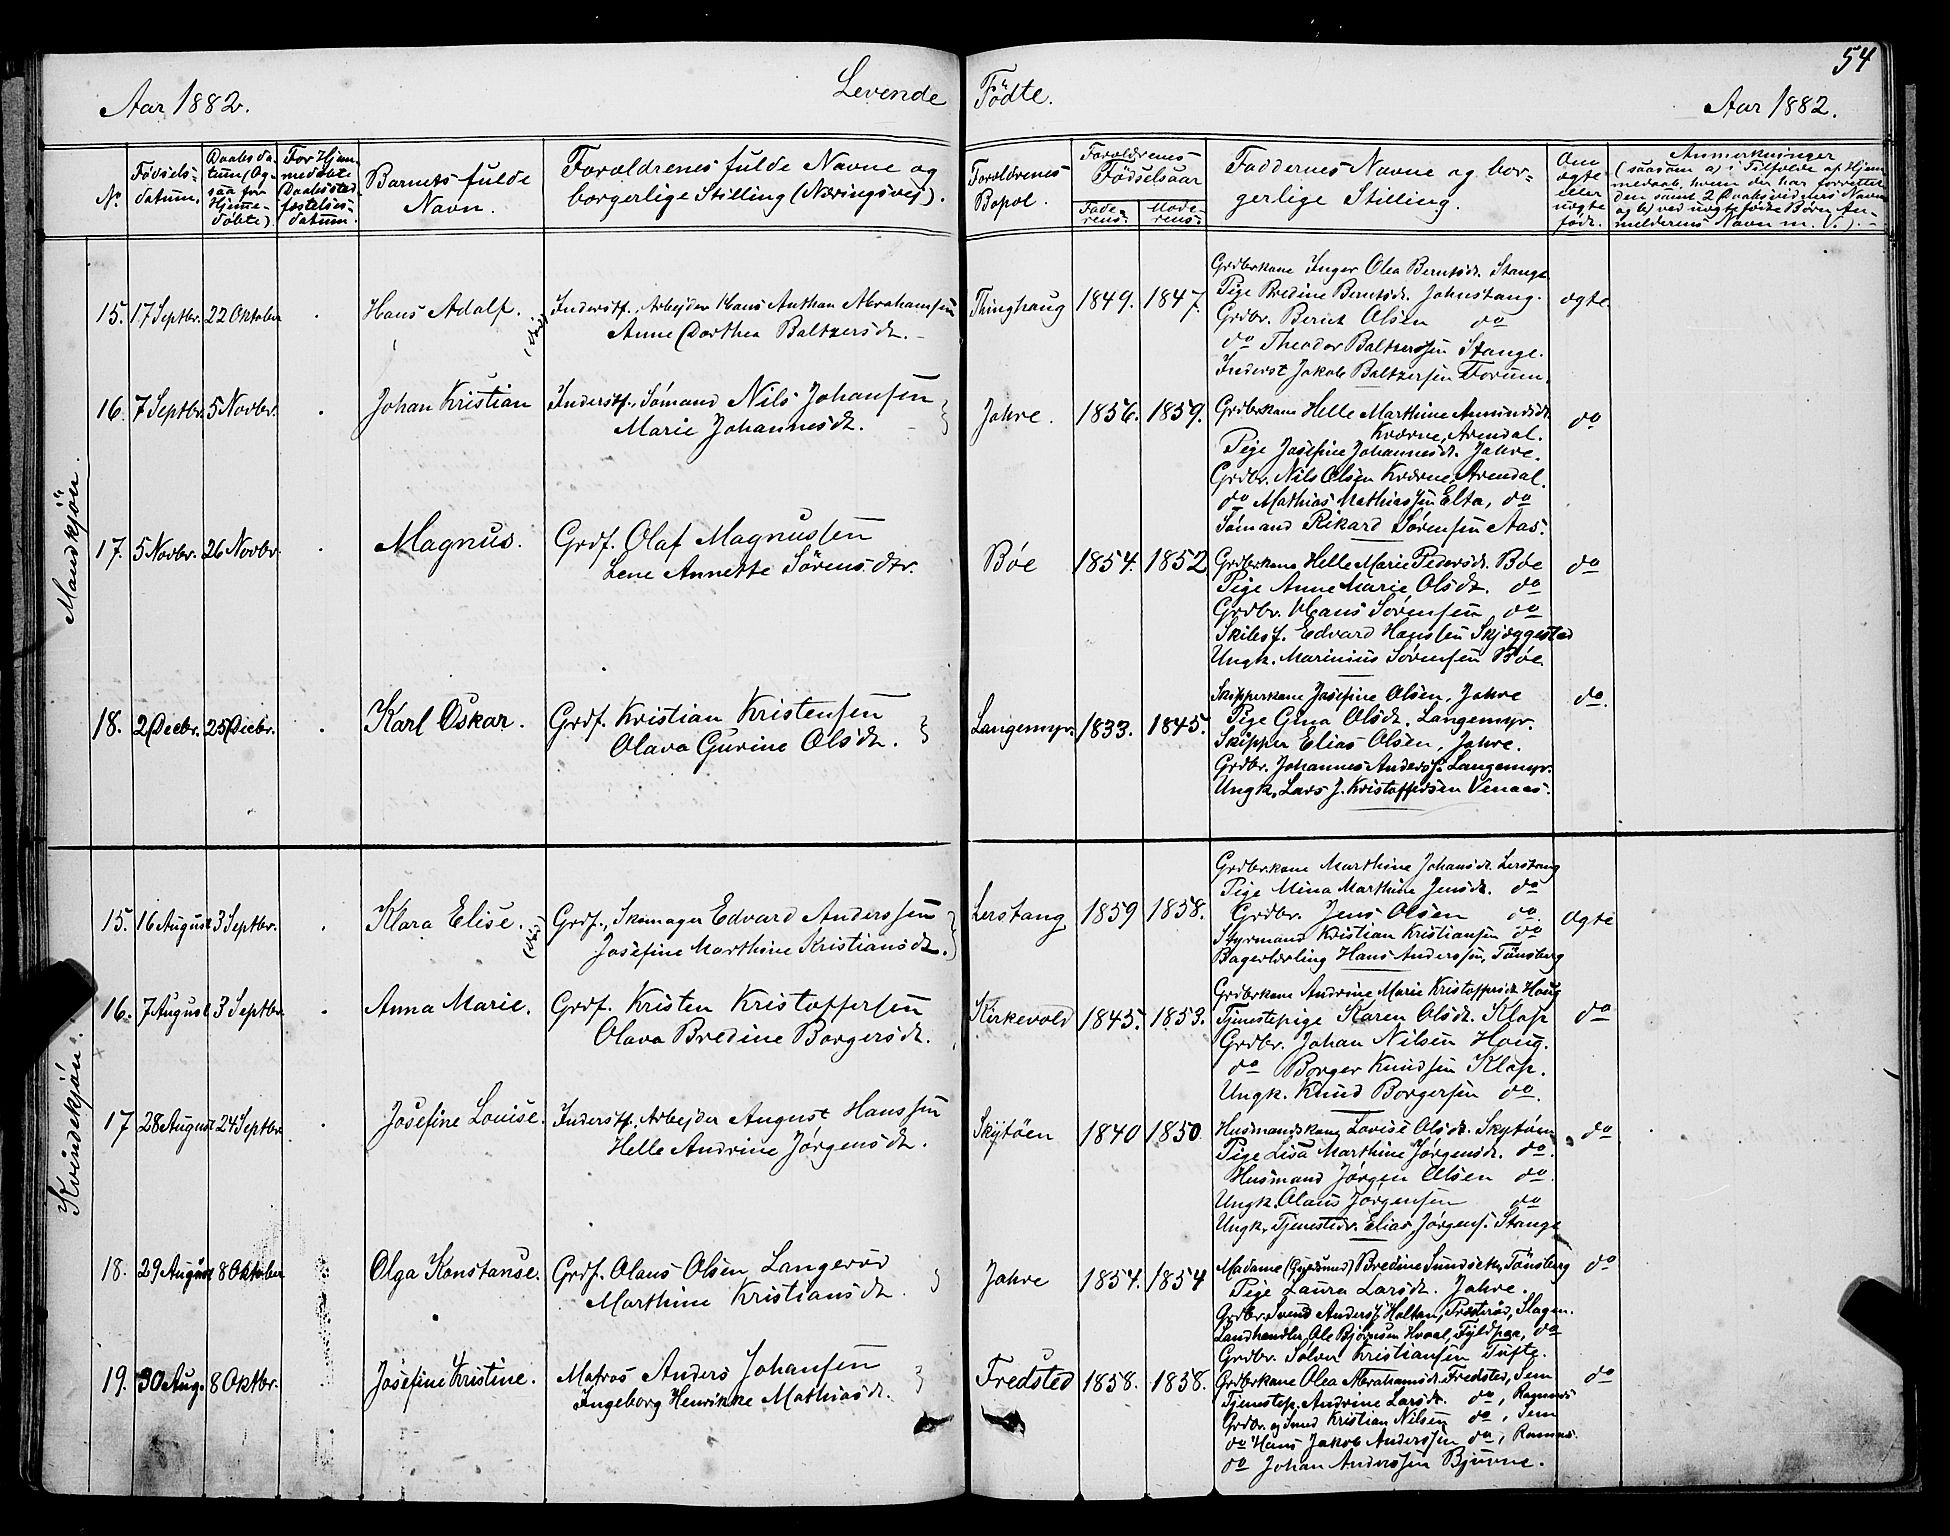 54
Aar 1882.
Levende Fødte.
Aar 1882.
No
Fødsels-
datum.
Daabsda-
tum (Og-
saa for
Hjemme-
døbte).
For Hjem-
medøbte
Daabsstad-
fæstelses-
datum.
Barnets fulde
Navn.
Forældrenes fulde Navne og
borgerlige Stilling (Næringsvej).
Forældrenes
Bopæl.
Forældrenes
Fødselsaar
Fade-
rens.
Mode-
rens.
Faddernes Navne og bor-
gerlige Stilling.
Om
ægte
eller
uægte
født.
Anmerkninger
(saasom a) i Tilfælde af Hjem-
medaab, hvem der har forrettet
den samt 2 Daabsvidners Navne
og b) ved uægte fødte Børn An-
melderens Navn m. V.).
Mandkjøn.
15. 17 Septbr. 22 Oktober Hans Adolf. Inderstf., Arbejder Hans Anthon Abrahamsen
Anne Dorthea Baltzersdt.
Thinghaug 1849. 1847. ægte
Grdbrkone Inger Olea Berntsdt. Stange
Pige Bredine Berntsdt. Johnstang.
Grdbr. Berint Olsen do
do Theodor Baltzerssen Stange.
Inderst Jakob Baltzersen Forum.
16. 7 Septbr. 5 Novbr. Johan Kristian Inderstf., Sømand Nils Johansen
Marie Johannesdt.
Jahre. 1856. 1859. do
Grdbrkone Helle Marthine Amundsdt.
Kværne, Arendal.
Pige Josefine Johannesdt. Jahre.
Grdbr. Nils Olsen Kværne, Arendal.
do Mathias Mathiassen Elta, do
Sømand Rikard Sørensen Aas.
17. 5 Novbr. 26 Novbr. Magnus. Grdf. Olaf Magnussen
Lene Annette Sörensdtr.
Bøe 1854. 1852 do
Grdbrkone Helle Marie Pedersdt. Bøe
Pige Anne Marie Olsdt. do
Grdbr. Hans Sørensen do
Skibsf. Edvard Hanssen Skjæggested
Ungk. Marinius Sørensen Bøe
18. 2 Decbr. 25 Decbr. Karl Oskar. Grdf. Kristian Kristensen
Olava Gurine Olsdt.
Langemyr. 1833. 1845. do.
Skipperkone Josefine Olsen, Jahre
Pige Gina Olsdt. Langemyr.
Skipper Elias Olsen, Jahre.
Grdbr. Johannes Anderss. Langemyr.
Ungk. Lars J. Kristoffersen Venaas.
Kvindekjøn.
15. 16 August 3 Septbr. Klara Elise. Grdf., Skomager Edvard Anderssen
Josefine Marthine Kristiansdt.
Lerstang 1859 1858. ægte
Grdbrkone Marthine Johansdt. Lerstang
Pige Mina Marthine Jensdt. do
Grdbr. Jens Olsen do.
Styrmand Kristian Kristiansen do
Bagerlærling Hans Anderssen, Tönsberg
16. 7 August 3 Septbr. Anna Marie. Grdf. Kristen Kristoffersen
Olava Bredine Borgersdt.
Kirkevold 1845. 1853. do
Grdbrkone Andrine Marie Kristoffersdt. Houg
Tjenestepige Karen Olsdt. Klop
Grdbr. Johan Nilsen Houg.
do Borger Knudsen Klop.
Ungk. Knud Borgersen do.
17 28 August 24 Septbr. Josefine Louise. Inderstf., Arbejder August Hanssen
Helle Andrine Jørgensdt.
Skytöen 1840 1850 do
Husmandskone Lovise Olsdt. Skytöen
Pige Lisa Marthine Jørgensdt. do.
Husmand Jørgen Olsen do.
Ungk. Olaus Jørgensen do
Ungk., Tjenestedr. Elias Jørgens. Stange
18. 29 August 8 Oktober Olga Konstanse. Grdf. Olaus Olsen Langerød
Marthine Kristiansdt.
Jahre 1854. 1854 do
Madame Bredine Tönsberg
Pige Laura Larsdt. Jahre.
Grdbr. Svend Anderss. Holtan, Præsterød, Slagen.
Landhandler Ole Bjørnsen Hvaal, Fyldpaa, do
Grdbr. Sølver Kristiansen Tufte.
19. 30 Aug. 8 Oktbr. Josefine Kristine. Matros Anders Johansen
Ingeborg Henrikke Mathiasdt.
Fredsted 1858. 1858. do
Grdbrkone Olea Abrahamsdt. Fredsted, Sem
Tjenestep. Andrine Larsdt. do, Ramnes
Grdbr. og Smed Kristian Nilsen do, Sem
do Hans Jakob Anderssen do, Ramnes.
do Johan Anderssen Bjuvne.